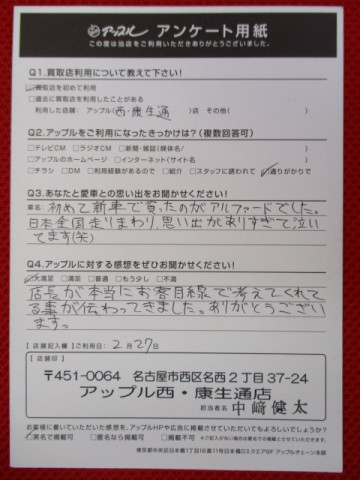 アップル アンケート用紙
この度は当店をご利用いただきありがとうございました。
Q1.買取店利用について教えて下さい!
☑買取店を初めて利用
□過去に買取店を利用したことがある
利用した店舗: アップル(西・康生通)店 その他( )
Q2.アップルをご利用になったきっかけは?(複数回答可)
□テレビCM □ラジオCM □新聞・雑誌(媒体名/ )
□アップルのホームページ □インターネット(サイト名 )
□チラシ □DM □利用経験があるので □紹介 □スタッフに誘われて ☑通りがかりで
Q3.あなたと愛車との思い出をお聞かせください!
車名: 初めて新車で買ったのがアルファードでした。
日本全国走りまわり、思い出がありすぎて泣い
てます(笑)
Q4.アップルに対する感想をぜひお聞かせください!
☑大満足 □満足 □普通 □もう少し □不満
店長が本当にお客目線で考えてくれて
る事が伝わってきました。ありがとうござい
ます。
【店舗記入欄】ご利用日: 2月27日
【店舗印】
〒451-0064 名古屋市西区名西2丁目37-24
アップル西・康生通店
担当者名 中﨑健太
お客様に書いていただいた感想を、アップルHPや広告に掲載させていただいてもよろしいでしょうか?
☑実名で掲載可 □匿名なら掲載可 □掲載不可 ※ご記入がない場合は匿名での掲載とさせていただきます。
東京都中央区日本橋1丁目16番11号日本橋Dスクエア5F アップルチェーン本部